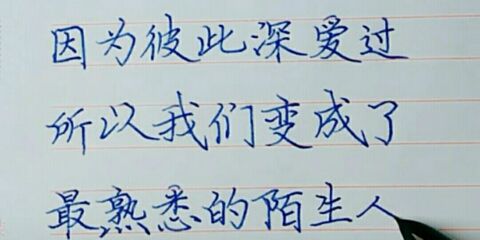 因为彼此深爱过
所以我们变成了
最熟悉的陌生人